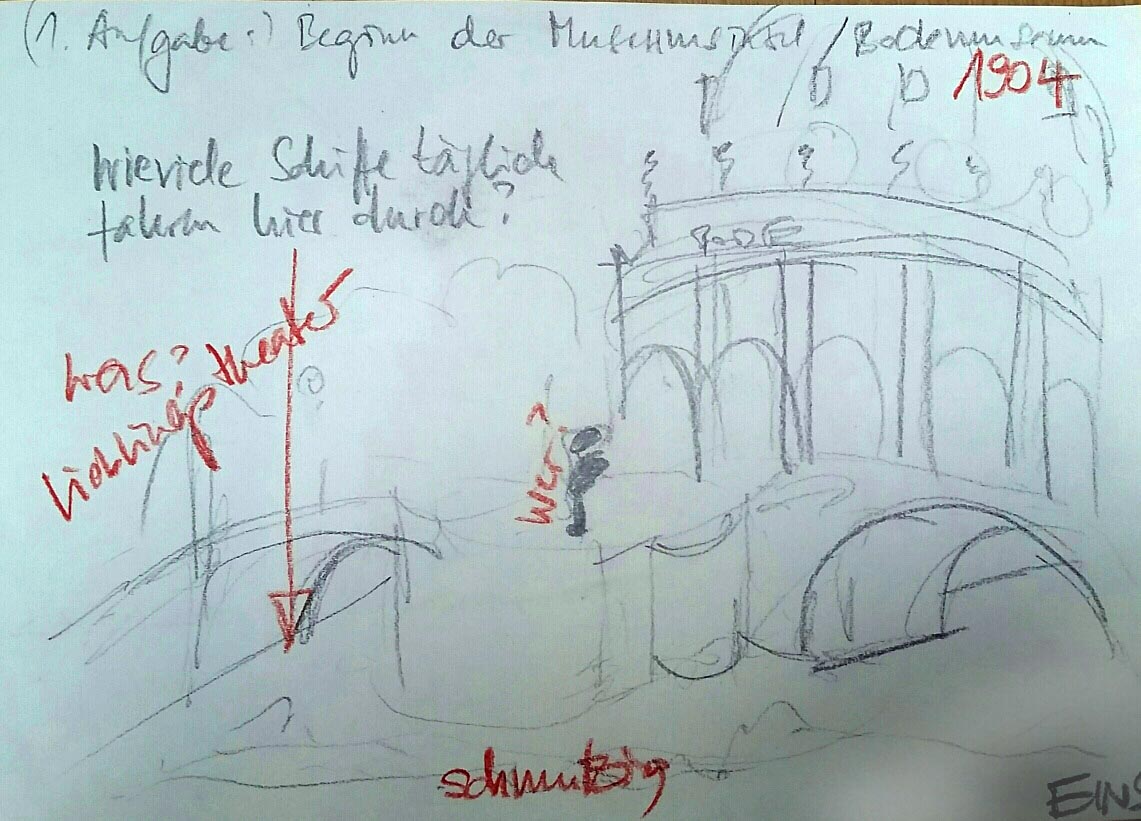 (1. Aufgabe:) Beginn der Museumsinsel / Bodemuseum
1904
wieviele Schiffe täglich
fahren hier durch?
BODE
was?
Lieblings theater
wer?
schmutzig
EINS